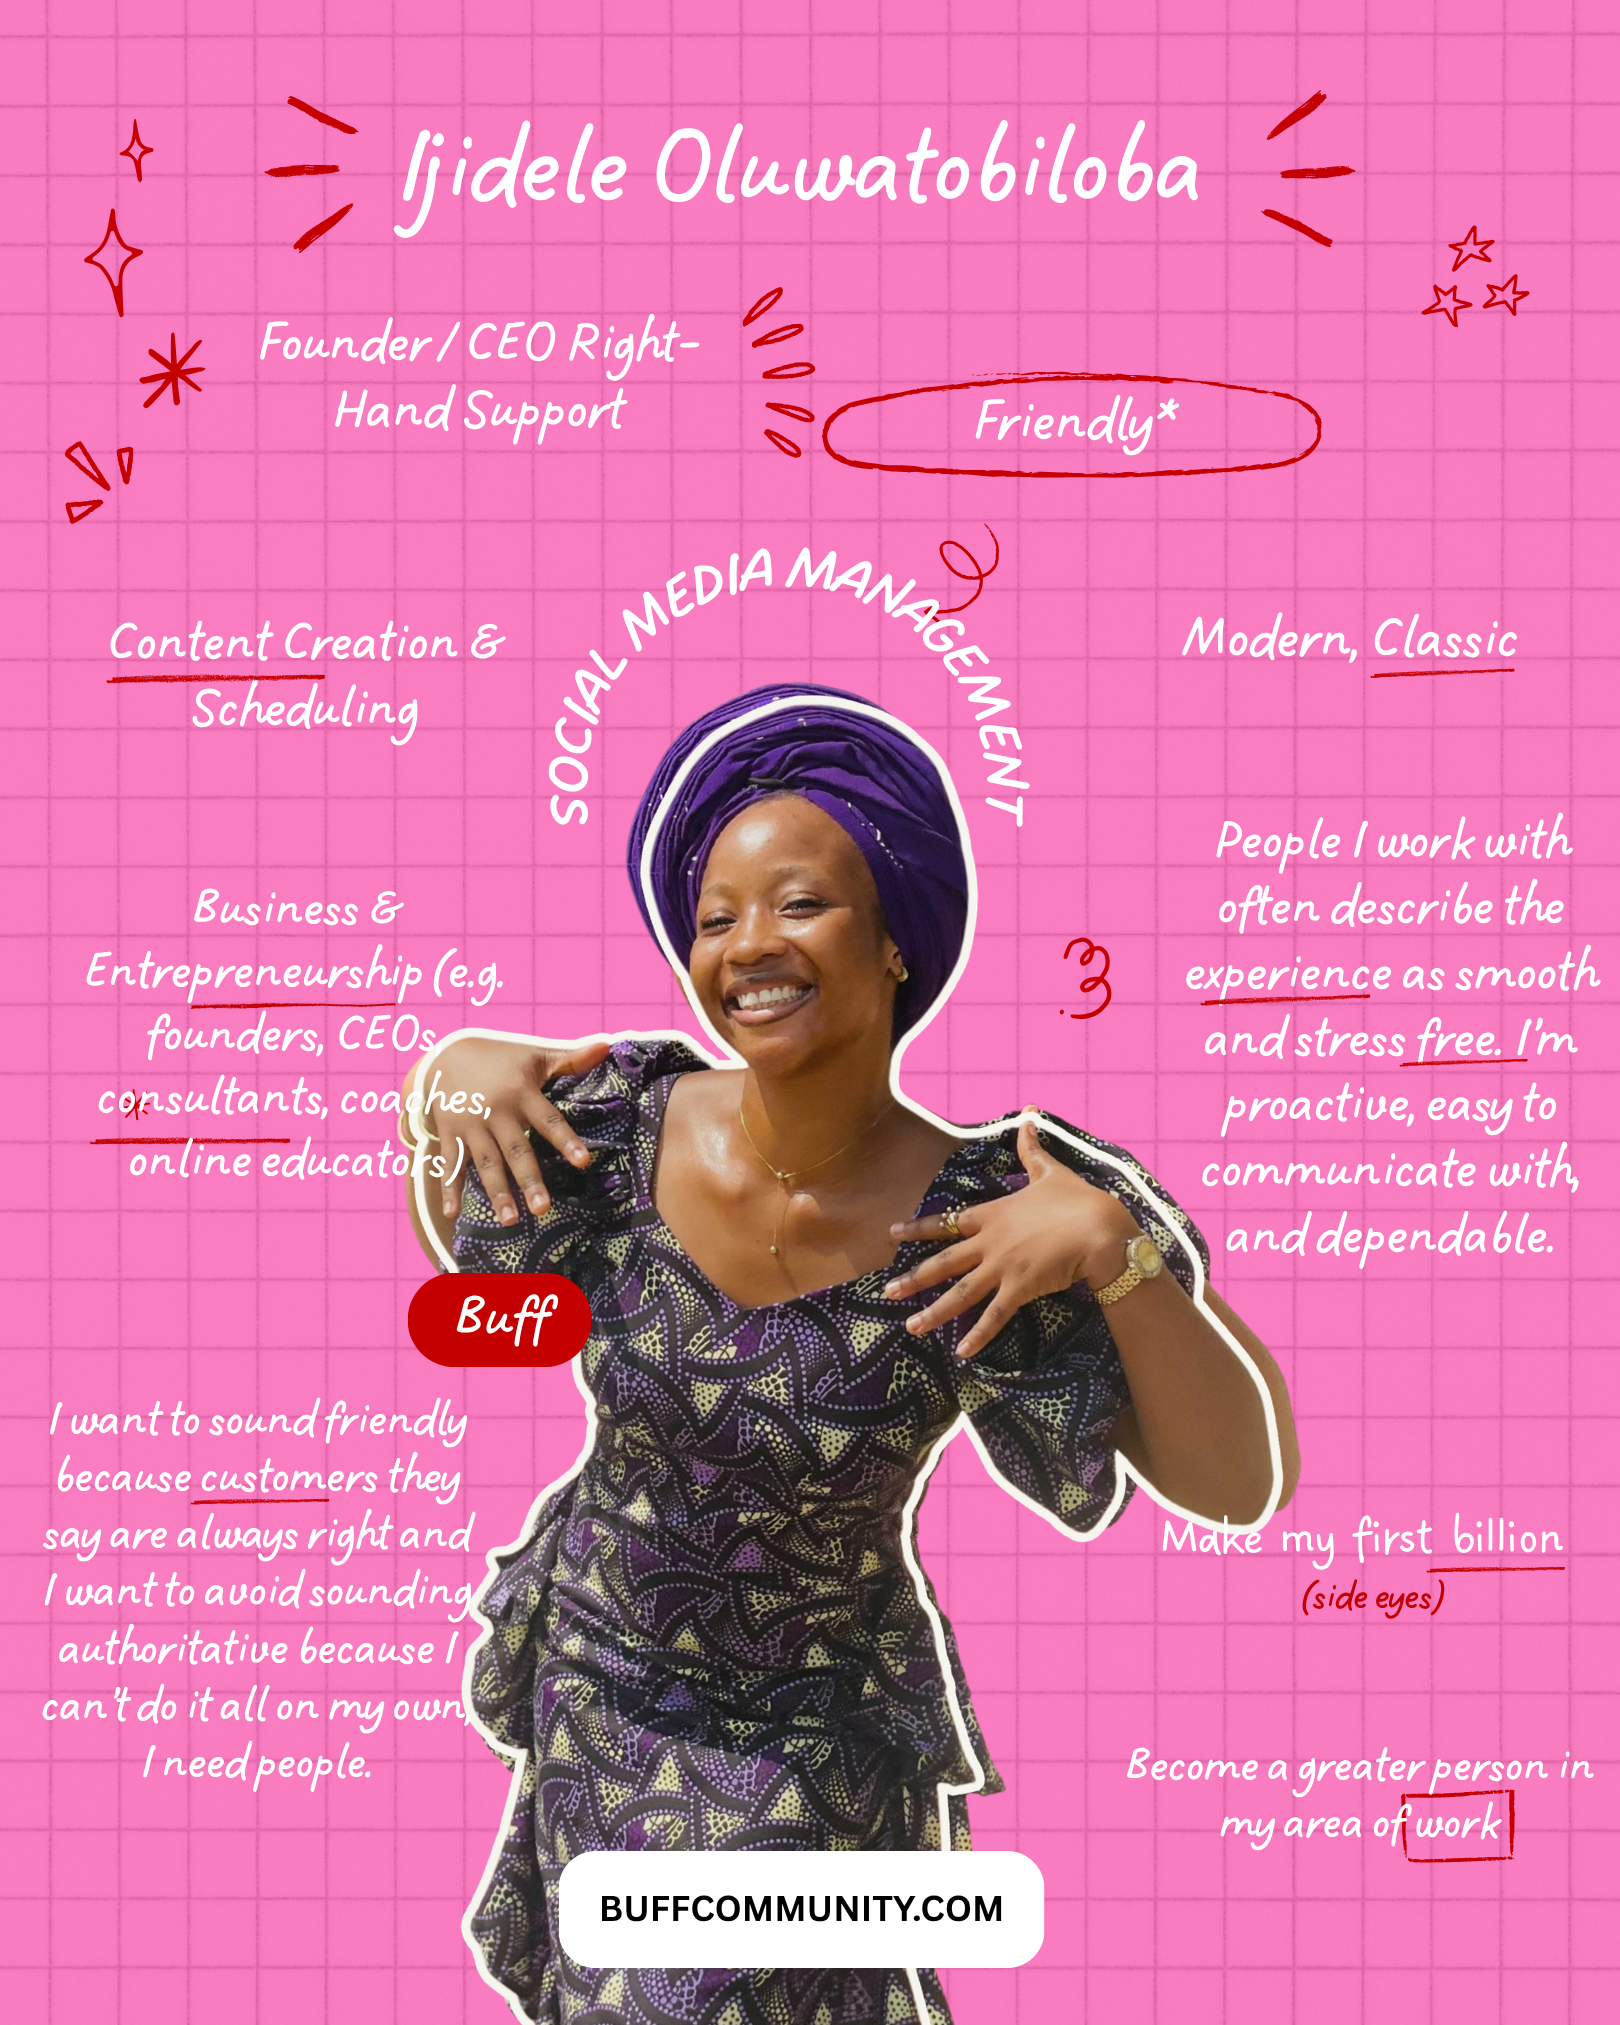 Ijidele Oluwatobiloba
Founder / CEO Right-
Hand Support
Friendly*
SOCIAL MEDIA MANAGEMENT
Content Creation &
Scheduling
Modern, Classic
Business &
Entrepreneurship (e.g.
founders, CEOs,
consultants, coaches,
online educators)
People I work with
often describe the
experience as smooth
and stress free. I'm
proactive, easy to
communicate with,
and dependable.
Buff
I want to sound friendly
because customers they
say are always right and
I want to avoid sounding
authoritative because I
can't do it all on my own,
I need people.
Make my first billion
(side eyes)
Become a greater person in
my area of work
BUFFCOMMUNITY.COM